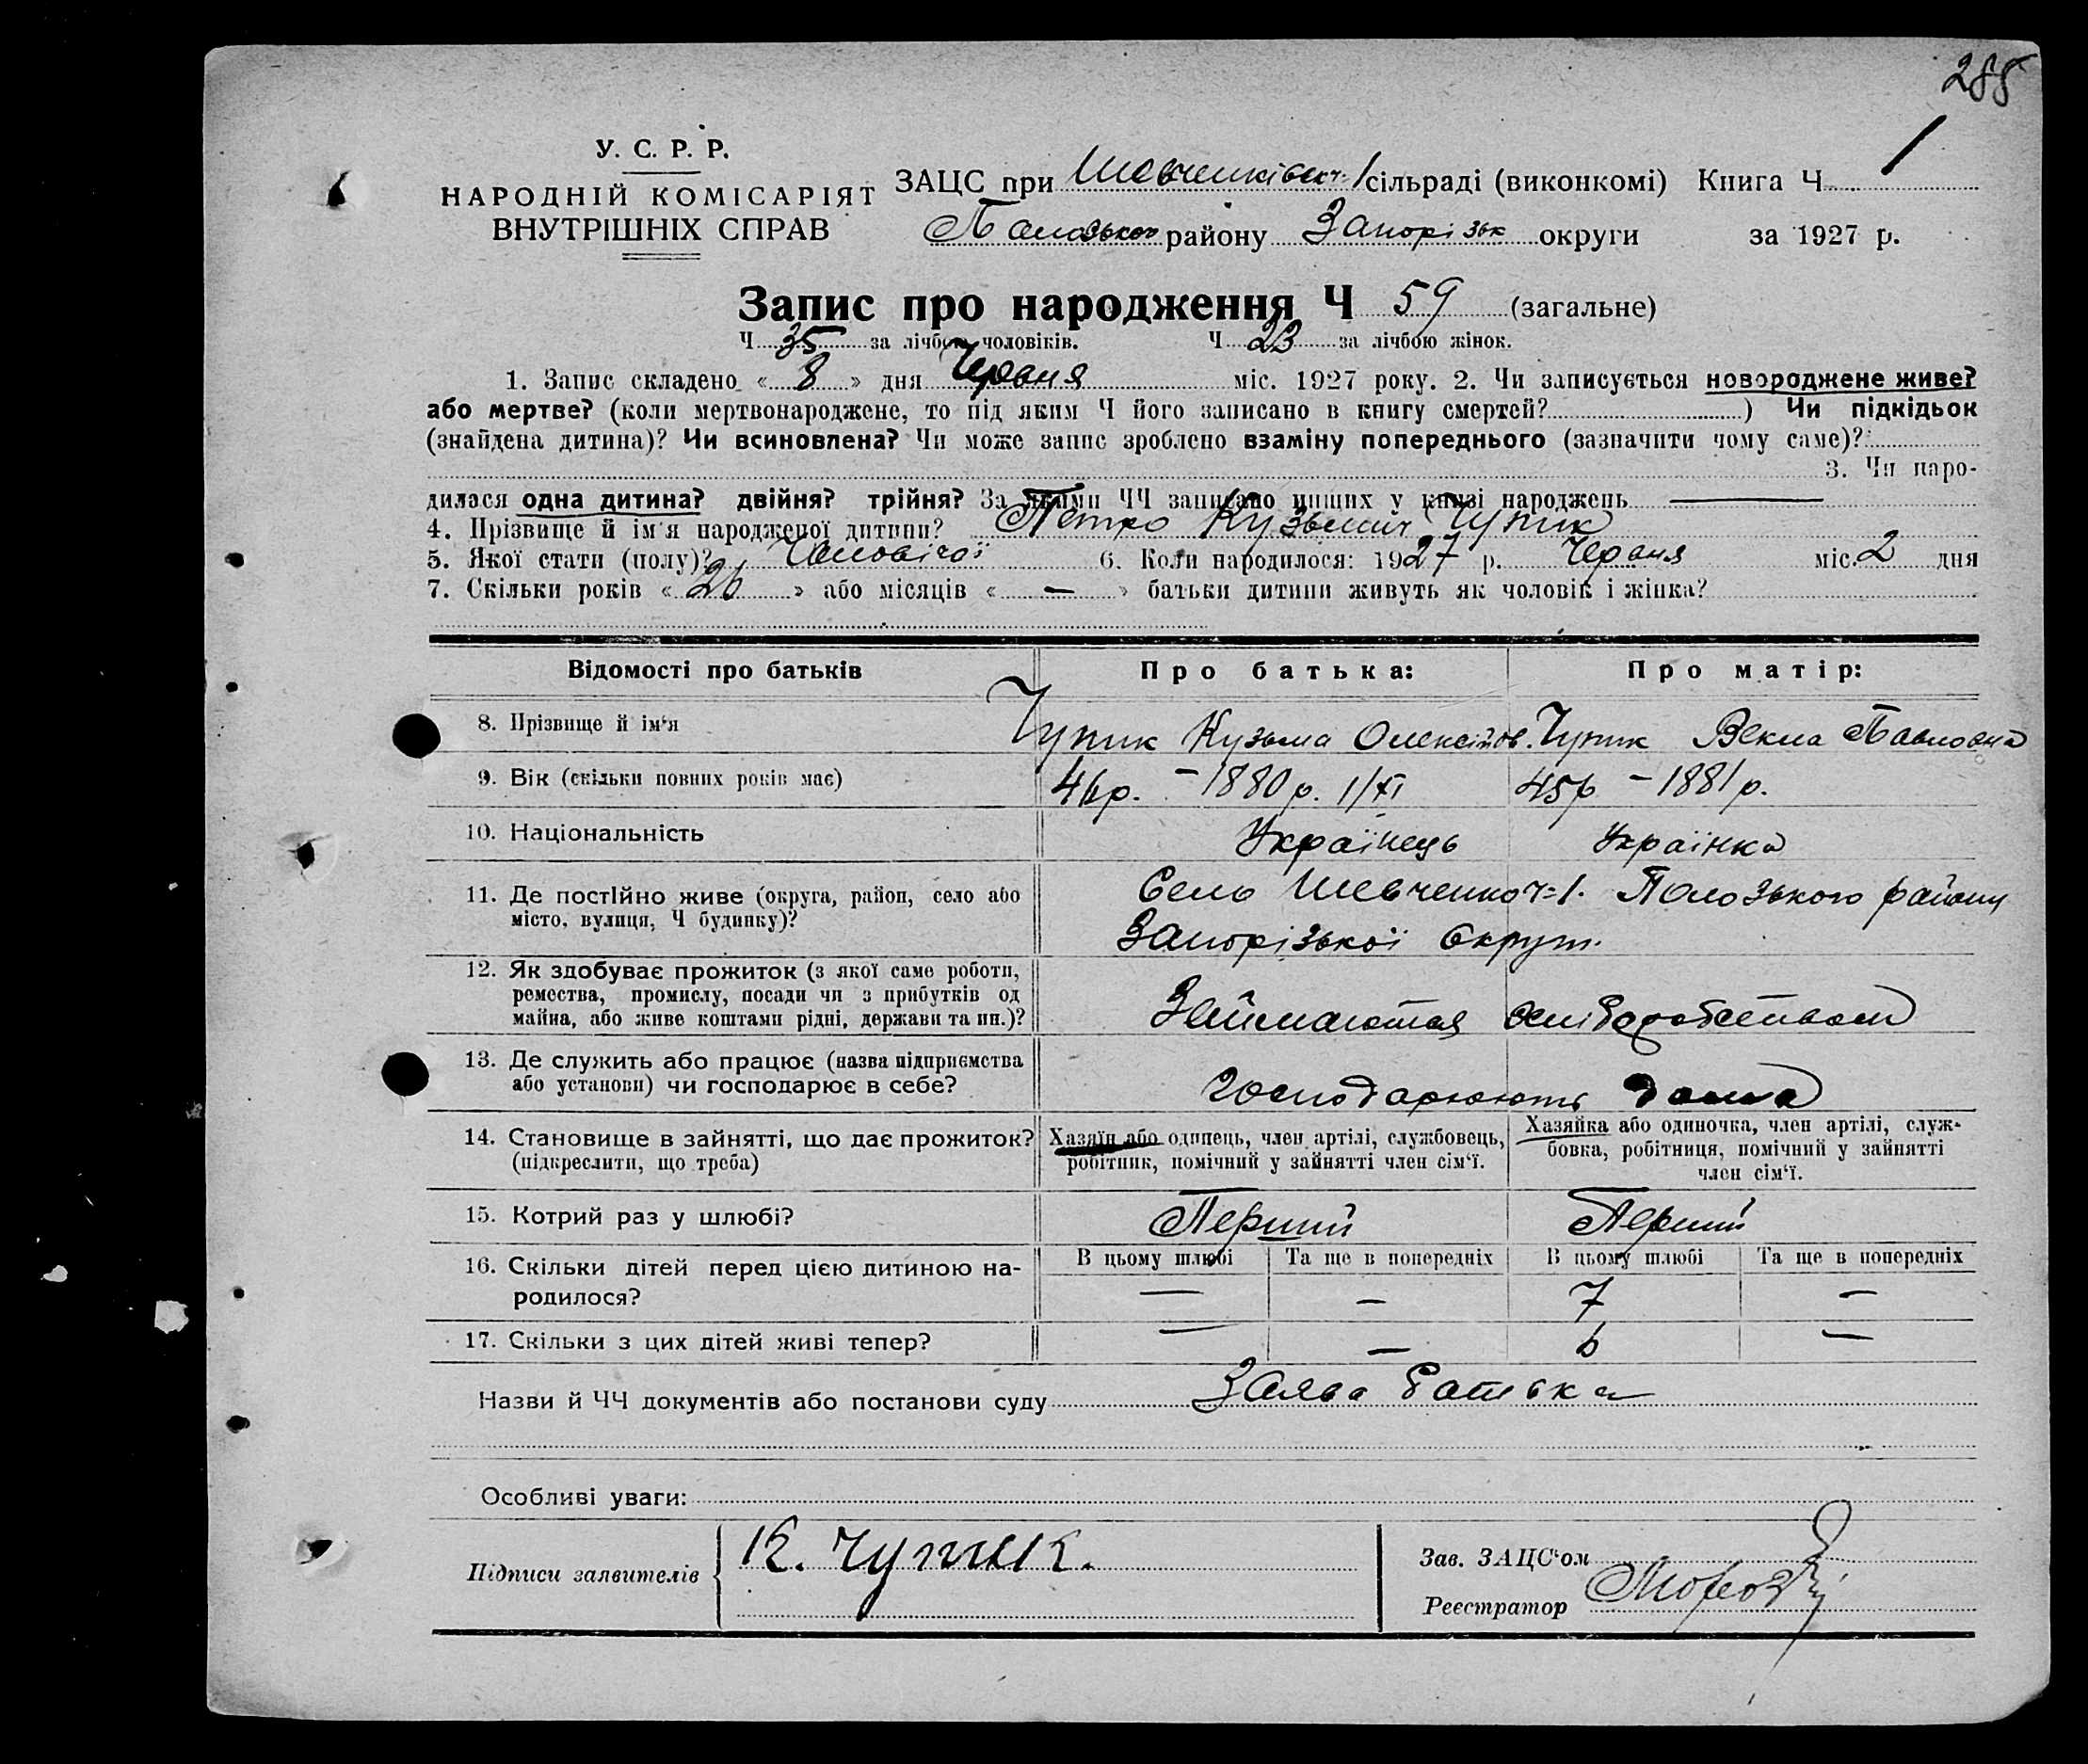 288
У. С. Р. Р.
НАРОДНІЙ КОМІСАРІЯТ
ВНУТРІШНІХ СПРАВ
ЗАЦС при Шевченківськ. 1 сільраді (виконкомі) Книга Ч. 1
Полозького району Запорізьк округи за 1927 р.
Запис про народження Ч 59 (загальне)
Ч 35 за лічбою чоловіків. Ч 23 за лічбою жінок.
1. Запис складено « 8 » дня Червня міс. 1927 року. 2. Чи записується новороджене живе?
або мертве? (коли мертвонароджене, то під яким Ч його записано в книгу смертей? ) Чи підкідьок
(знайдена дитина)? Чи всиновлена? Чи може запис зроблено взаміну попереднього (зазначити чому саме)?
3. Чи наро-
дилася одна дитина? двійня? трійня? За якими ЧЧ записано инших у книзі народжень —
4. Прізвище й ім'я народженої дитини? Петро Кузьмич Чупик
5. Якої стати (полу)? Чоловічої 6. Коли народилося: 1927 р. Червня міс. 2 дня
7. Скільки років « 26 » або місяців « — » батьки дитини живуть як чоловік і жінка?
Відомості про батьків Про батька: Про матір:
8. Прізвище й ім'я Чупик Кузьма Олексійов. Чупик Векла Павловна
9. Вік (скільки повних років має) 46р. – 1880 р. 1/XI 45р – 1881 р.
10. Національність Українець Українка
11. Де постійно живе (округа, район, село або Село Шевченко ч=1. Полозького району
місто, вулиця, Ч будинку)? Запорізької Округи.
12. Як здобуває прожиток (з якої саме роботи,
ремества, промислу, посади чи з прибутків од
майна, або живе коштами рідні, держави та ин.)? Займаются хліборобством
13. Де служить або працює (назва підприємства
або установи) чи господарює в себе? Господарюють дома
14. Становище в зайнятті, що дає прожиток? Хазяїн або одинець, член артілі, службовець, Хазяйка або одиночка, член артілі, служ-
(підкреслити, що треба) робітник, помічний у зайнятті член сім'ї. бовка, робітниця, помічний у зайнятті
член сім'ї.
15. Котрий раз у шлюбі? Перший Перший
16. Скільки дітей перед цією дитиною на- В цьому шлюбі Та ще в попередніх В цьому шлюбі Та ще в попередніх
родилося? — — 7 —
17. Скільки з цих дітей живі тепер? — — 6 —
Назви й ЧЧ документів або постанови суду Заява батька
Особливі уваги:
Підписи заявителів К. Чупик.
Зав. ЗАЦС'ом
Реєстратор